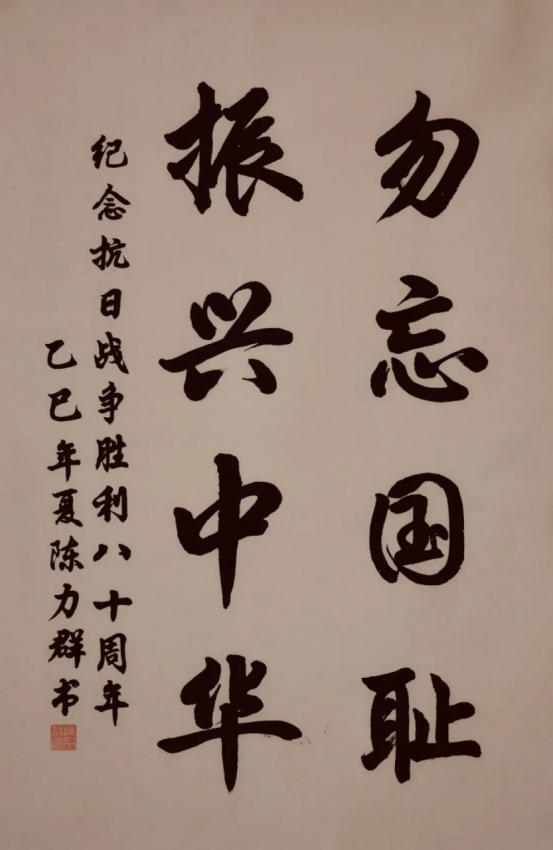 勿忘国耻
振兴中华
纪念抗日战争胜利八十周年
乙巳年夏陈力群书